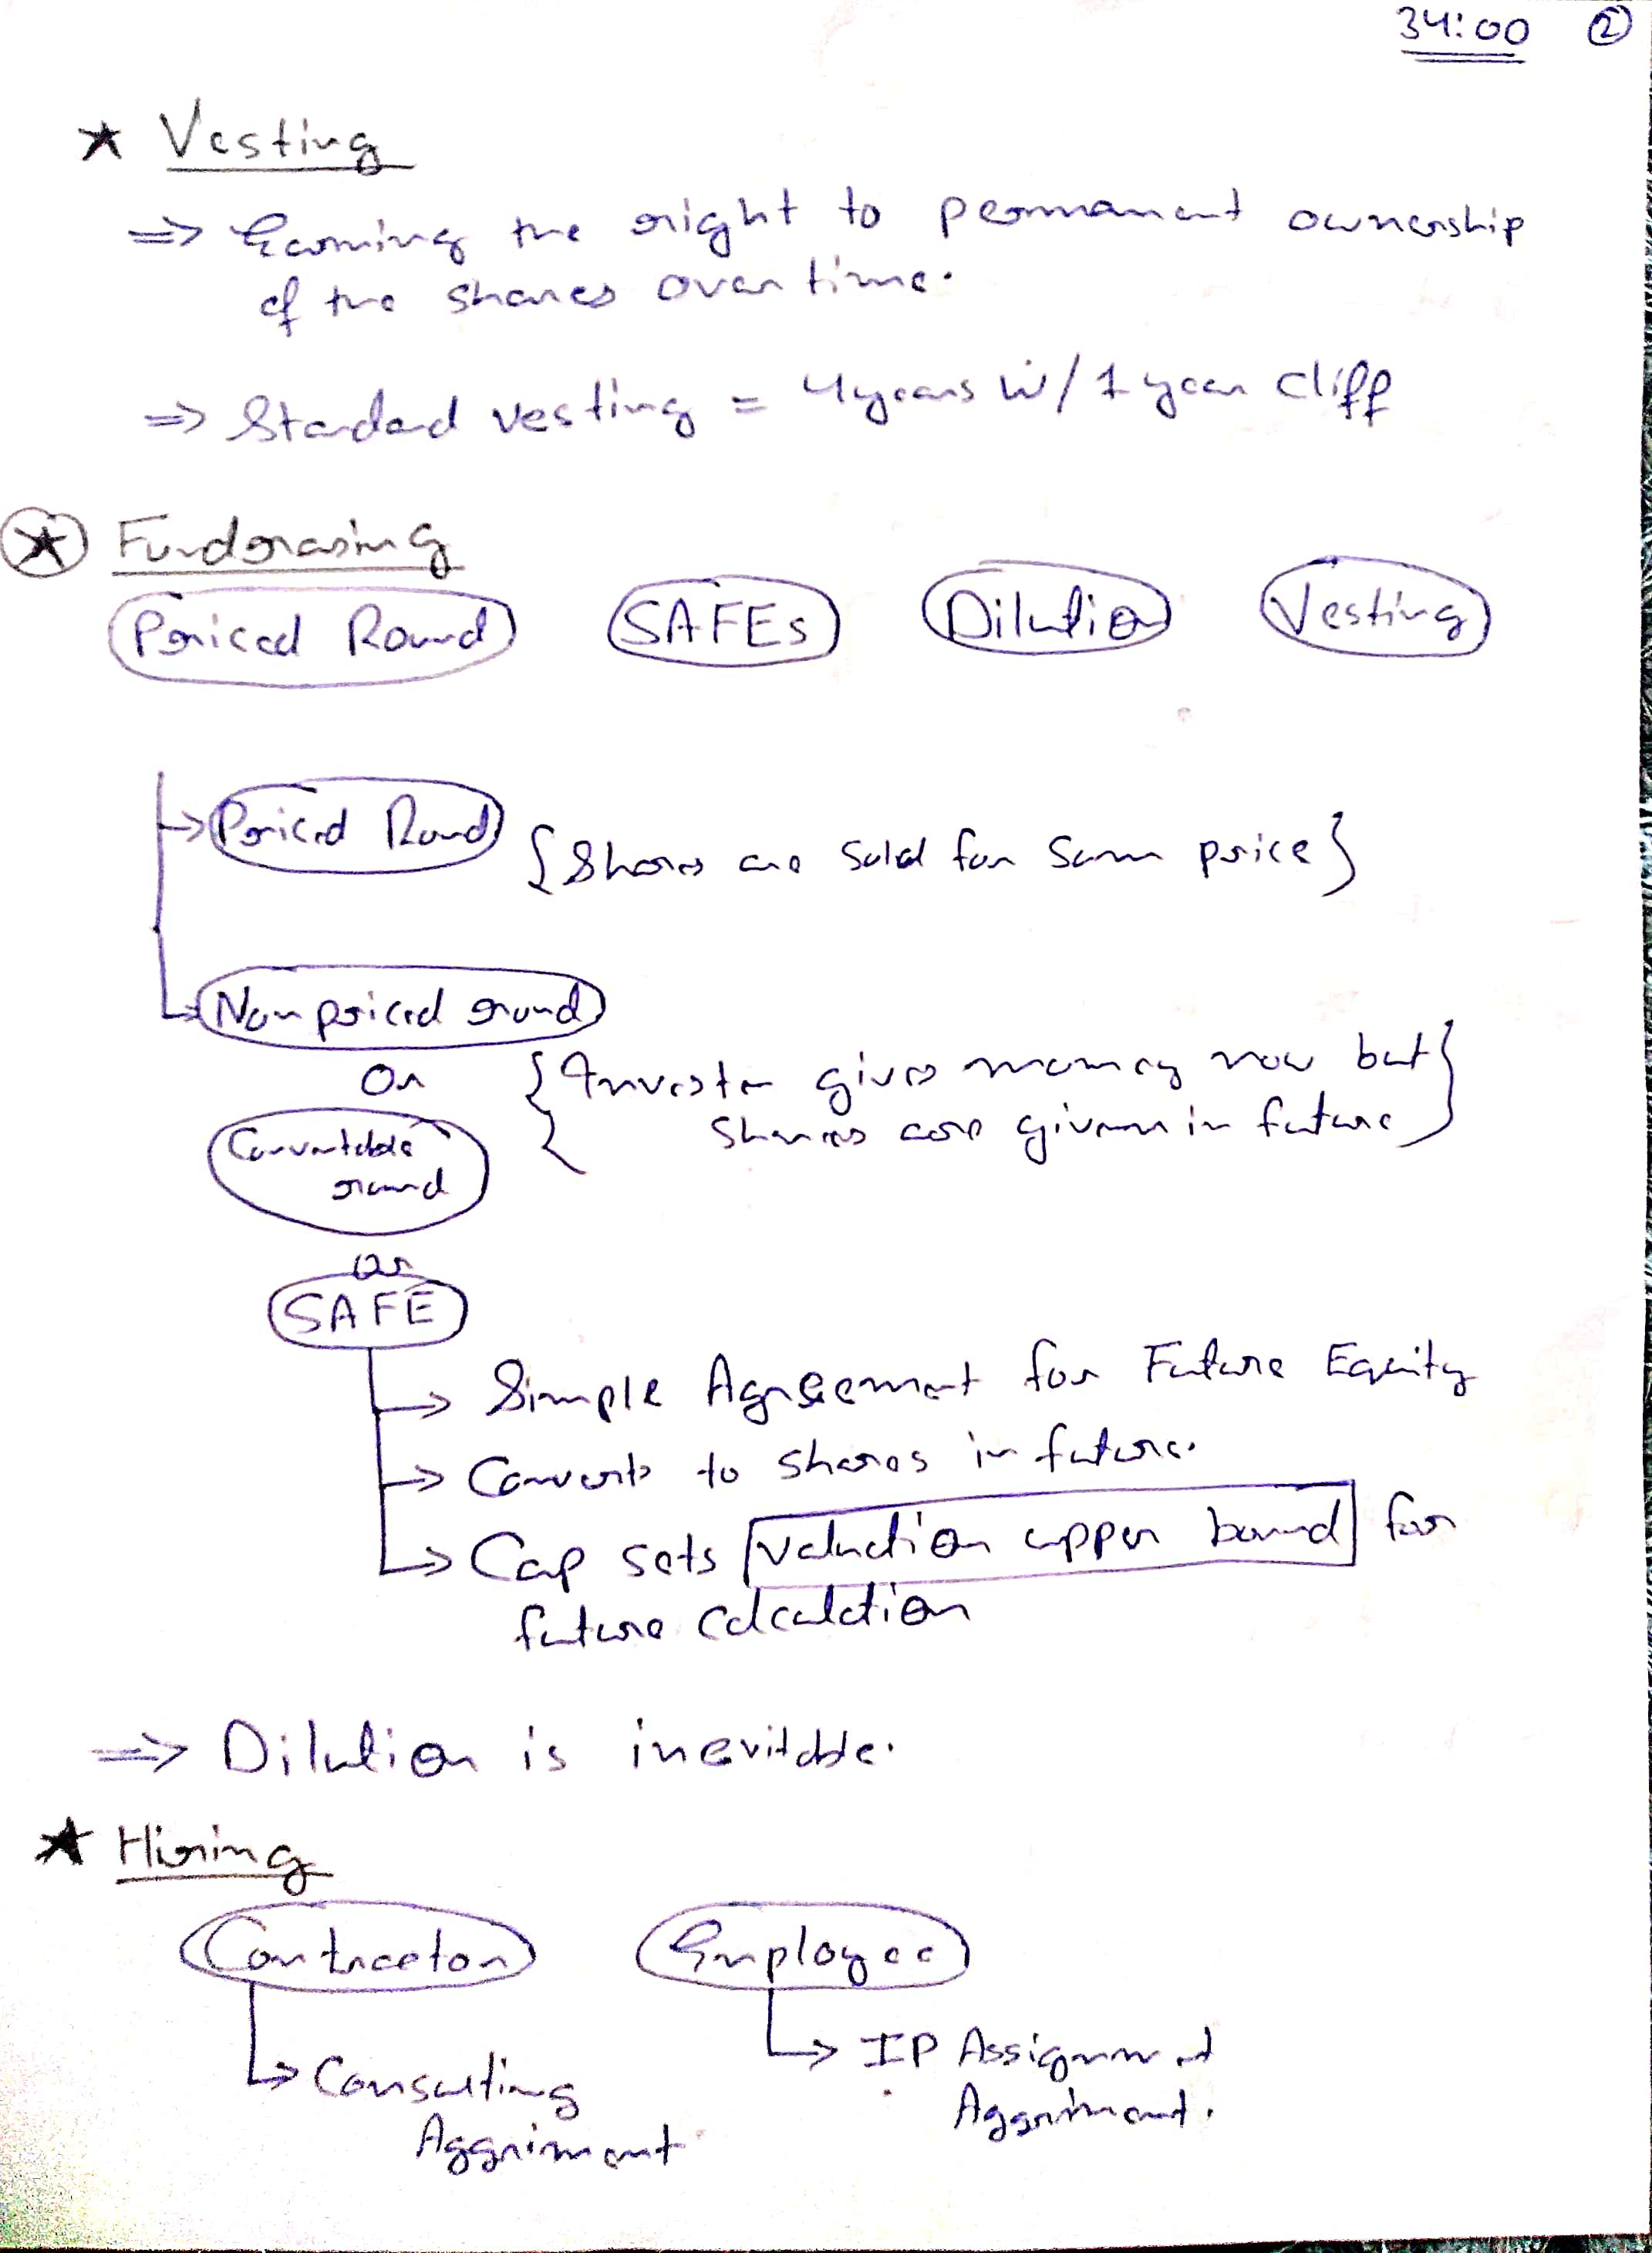 34:00 2
★ Vesting
⇒ Earning the right to permanent ownership
of the shares over time.
⇒ Standard vesting = 4 years w/ 1 year cliff
★ Fundrasing
Priced Round SAFEs Dilution Vesting
→ Priced Round {Shares are sold for same price}
→ Non priced round
Or {Investor gives money now but
shares are given in future}
Convertable
round
or
SAFE
→ Simple Agreement for Future Equity
→ Converts to shares in future.
→ Cap sets valuation upper bound for
future calculation
⇒ Dilution is inevitable.
★ Hiring
Contractor Employee
→ Consulting
Aggriment
→ IP Assignment
Aggriment.